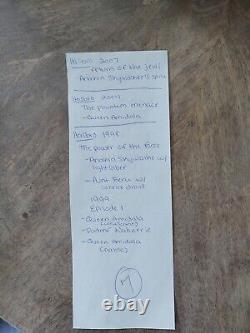 Hasbro 2007
return of the jedi
Anakin Skywalker's spirit
Hasbro 2004
The phantom menace
- Queen Amidala
Hasbro 1998
The power of the Force
- Anakin Skywalker w/
lightsaber
- Aunt Beru w/
service droid
1999
Episode 1
- Queen Amidala
- Padmé Naberrie
- Queen Amidala
(Naboo)
7
© wotebo.com